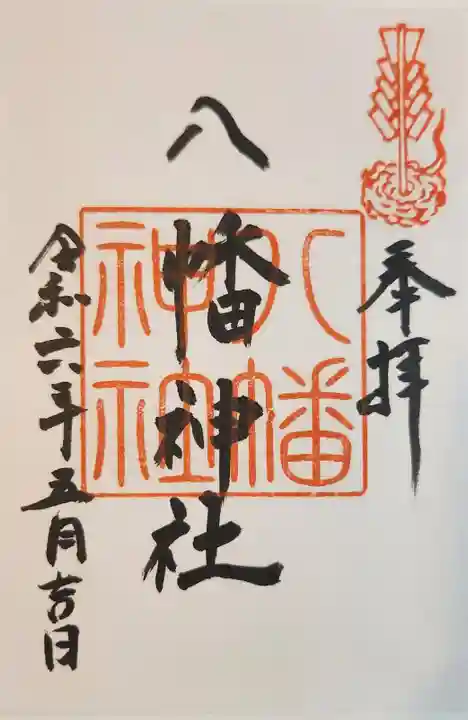 奉拝
八幡神社
八幡神社
令和六年五月吉日